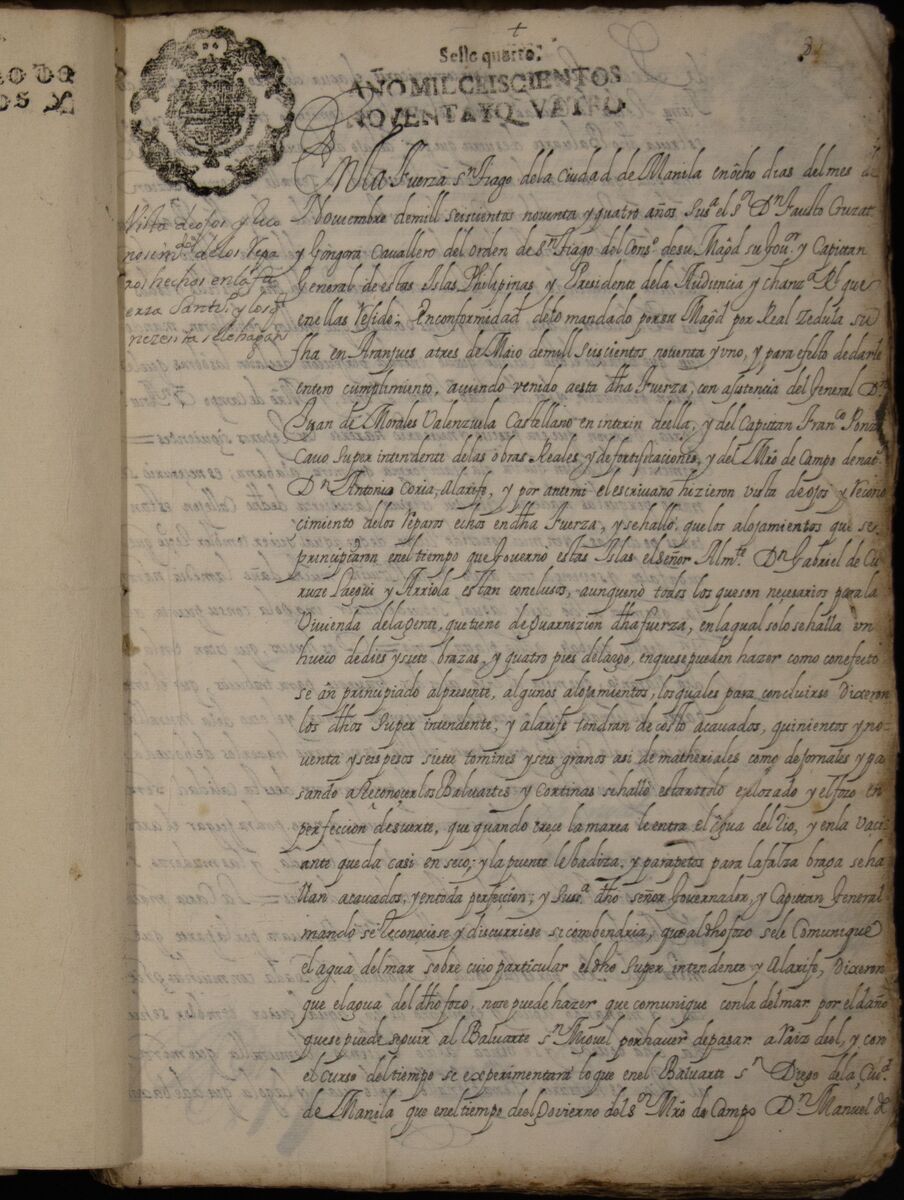 Sello quarto.
AÑO MIL SEISCIENTOS
NOVENTA Y QUATRO.
En la Fuerza sn. Tiago dela Ciudad de Manila en ocho dias del mes de
Noviembre de mill seiscientos noventa y quatro años Susa. el sor. Dn. Fausto Cruzat
y Gongora Cavallero del orden de sn. Tiago del Conso. de su Magd. su Gour. y Capittan
General de estas Islas Philipinas y Presidente dela Audiencia y chanza. Rl. que
en ellas reside; En conformidad delo mandado por su Magd. por Real Zedula su
fha en Aranjues a tres de Maio de mill seiscientos noventa y uno, y para efecto de darle
entero cumplimiento, auiendo venido a esta dha Fuerza, con asistencia del General Dn.
Juan de Morales Valenzuela Castellano en interin de ella, y del Capittan Franco. Ponze
Cauo Super intendente delas obras Reales y de fortificaciones, y del Mro de Campo de nats.
Dn. Antonio Coria, Alarife, y por ante mi el escriuano hizieron vista de ojos y recono
cimiento delos reparos echos en dha Fuerza, y se hallo, que los alojamientos que se
principiaron en el tiempo que Governo estas Islas el señor Almte. Dn. Gabriel de Cu
ruzelaegui y Arriola estan conclusos, aunque no todos los que son neçesarios para la
Vivienda dela gente, que tiene de guarnizion dha fuerza, en la qual solo se halla vn
hueco de dies y siete brazas, y quatro pies de largo, en que se pueden hazer como con efecto
se an principiado al presente, algunos alojamientos, los quales para concluirse Dixeron
los dhos Super intendente, y alarife tendran de costo acauados, quinientos y no-
uenta y seis pesos siete tomines y seis granos asi de matheriales como de jornales y pa
sando a Reconoçer los Baluartes y Cortinas se hallo estar todo y el fozo en
perfeccion de suerte, que quando creçe la marea le entra el agua del Rio, y en la vaci-
ante queda casi en seco; y la puente lebadiza, y parapetos para la falza braga se ha
llan acauados, y en toda perfeçion; y Susa. dho señor Governador, y Capittan General
mandó se reconociese y discurriese si combendria, que al dho fozo se le Comunique
el agua del mar sobre cuio particular el dho Super intendente y Alarife, Dixeron
que el agua del dho fozo, no se puede hazer que comunique con la del mar por el daño
que se puede seguir al Baluarte sn. Miguel por hauer de pasar a raiz del, y con
el curso del tiempo se experimentara lo que en el Baluarte sn. Diego dela Ciud.
de Manila que en el tiempo de el Govierno del sor. Mro de Campo Dn. Manuel de
Vista de ojos y reco
nosimto. de los repa
ros hechos en la fu
erza Santiago y los q
nezesita